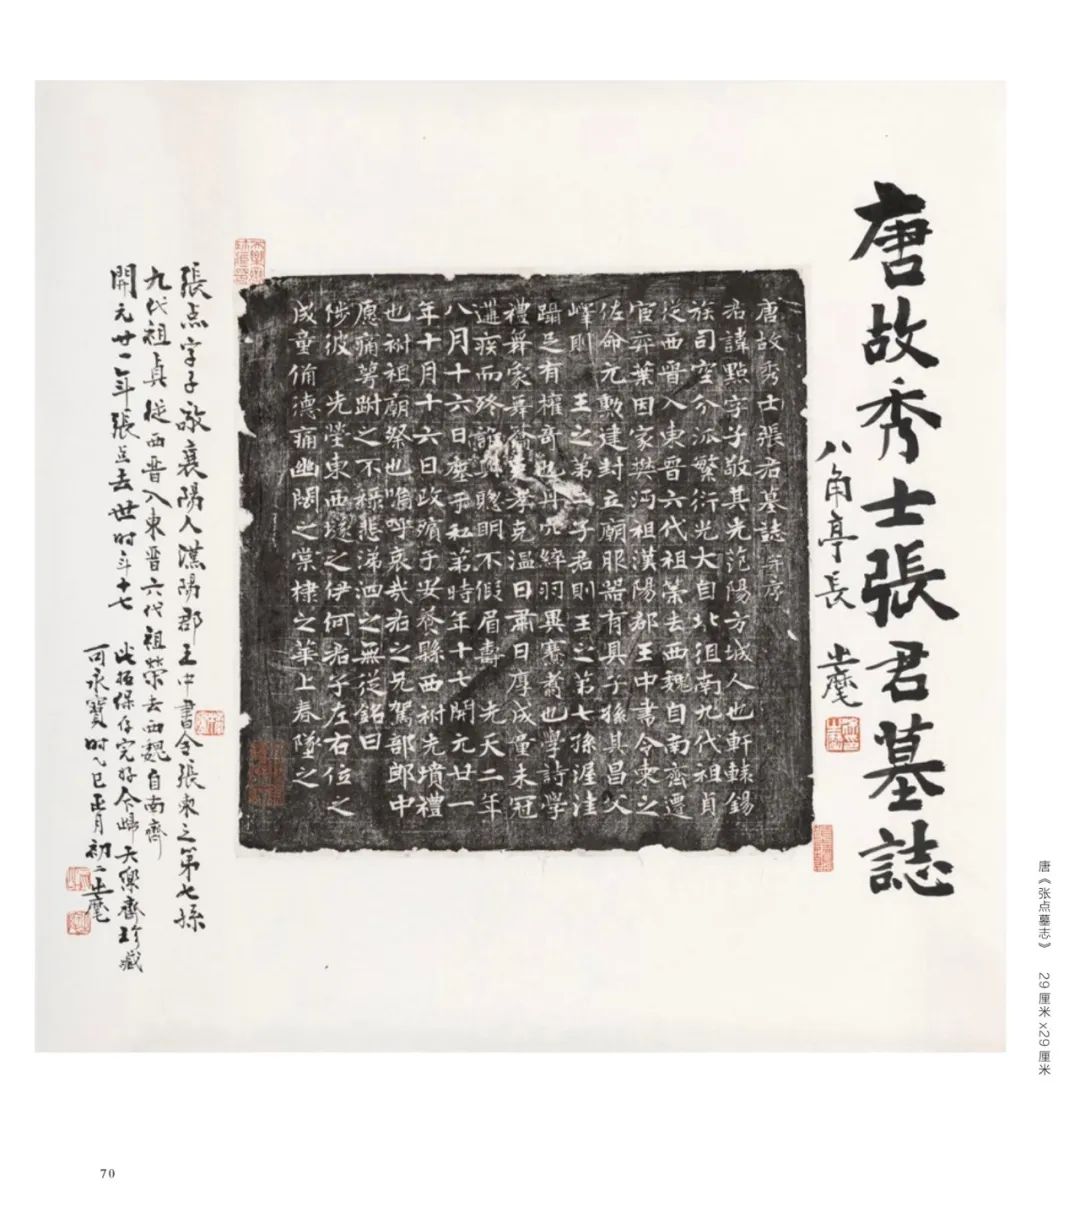 唐故秀士張君墓誌
八角亭長
唐故秀士張君墓誌并序
君諱點字子敬其先范陽方城人也軒轅錫
族司空分派繁衍光大自北徂南九代祖貞
從西晋入東晋六代祖榮去西魏自南齊遷
宦弈葉因家樊沔祖漢陽郡王中書令柬之
佐命元勲建封立廟服器有具子孫其昌父
嶧則王之第二子君則王之第七孫渥洼
躡足有權奇也丹穴綷羽異騫翥也學詩學
禮舞象舞籥友孝克温日肅日厚成童未冠
遘疾而終聰明不假眉壽先天二年
八月十六日塟于私第時年十七開元廿一
年十月十六日改殯于安養縣西祔先墳禮
也祔祖廟祭也嗚呼哀哉君之兄駕部郎中
愿痛萼跗之不悲涕泗之無從銘曰
陟彼先塋東西塋之伊何君子左右位之
成童脩德痛幽閟之棠棣之華上春墜之
張点字子敬襄陽人漢陽郡王中書令張柬之第七孫
九代祖貞從西晋入東晋六代祖榮去西魏自南齊
開元廿一年張点去世時年十七
此拓保存完好今歸天樂齋珍藏
可永寶時乙巳正月初二
唐《张点墓志》 29厘米x29厘米
70